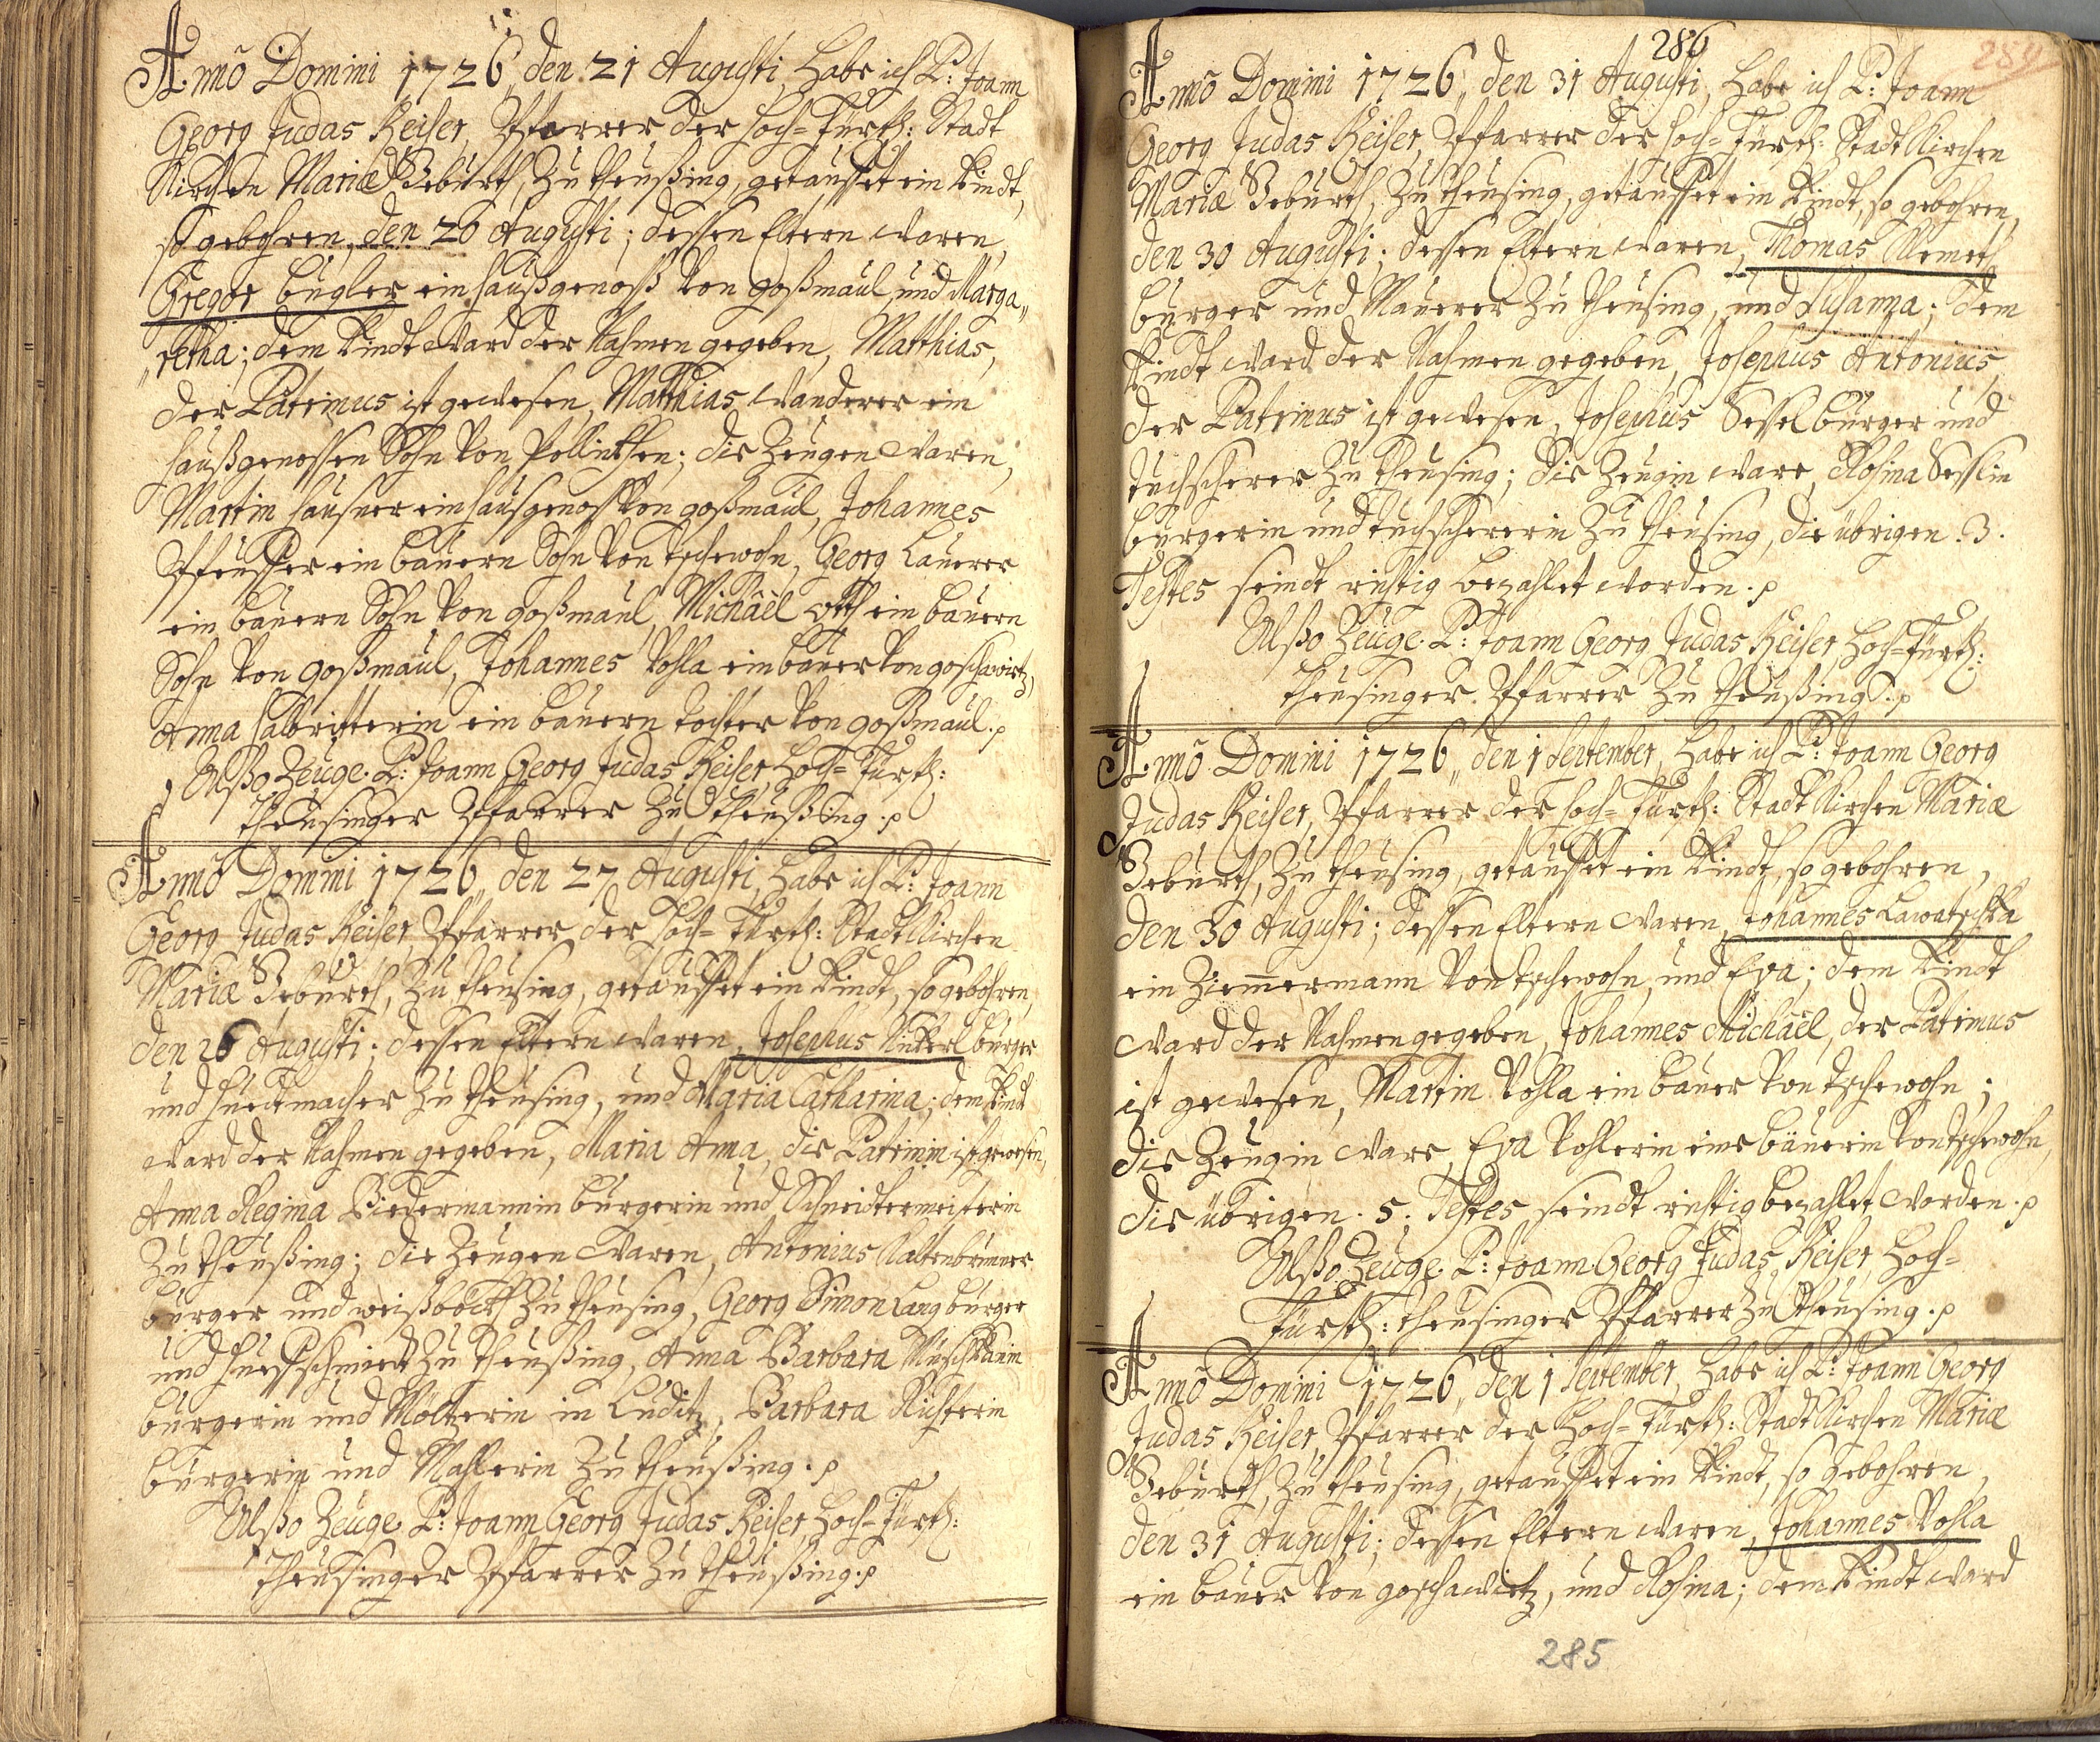 Anno Domini 1726, den 21 Augusti, habe ich P: Joann
Georg Judas Keiser, Pfarrer der hoch=Fürstl: Stadt
Kirchen Mariæ Geburth, zu Theußing, getauffet ein Kindt,
so gebohren, den 20 Augusti; dessen Eltern waren,
Gregor Bugler ein haußgenoß von goßmaul, und Marga„
„retha; dem Kindt ward der Nahmen gegeben, Matthias,
der Patrinus ist gewesen, Matthias Wanderer ein
haußgenossen Sohn von Pollinkhen; die Zeugen waren,
Martin Hausner ein hausgenoß von goßmaul, Johannes
Pfeuffer ein bauern Sohn von Tschewohn, Georg Lauerer
ein bauern Sohn von goßmaul, Michaël Otth ein bauern
Sohn von goßmaul, Johannes Vohla ein bauer von goschawitz,
Anna Halbritterin ein bauern tochter von goßmaul.
Alßo Zeuge P: Joann Georg Judas Keiser, hoch=Fürstl:
theusinger Pfarrer zu Theußing.
Anno Domini 1726, den 27 Augusti, habe ich P: Joann
Georg Judas Keiser, Pfarrer der hoch=Fürstl: Stadt Kirchen
Mariæ Geburth, zu Theusing, getauffet ein Kindt, so gebohren,
den 26 Augusti; dessen Eltern waren, Josephus Kickerl burger
und huedtmacher zu Theusing, und Maria Catharina; dem Kindt
ward der Nahmen gegeben, Maria Anna, die Patrinin ist gewesen,
Anna Regina Biedermannin burgerin und Schneidtermeisterin
zu Theußing; die Zeugen waren, Antonius Kaltenbrunner
burger und weißböckh zu Theusing, Georg Simon Lang burger
und huefschmiedt zu Theußing, Anna Barbara Muschkanin
burgerin und Möltzerin in Luditz, Barbara Richterin
burgerin und Mahlerin zu Theußing.
Alßo Zeuge P: Joann Georg Judas Keiser, hoch=Fürstl:
theusinger Pfarrer zu Theußing.
286
284
Anno Domini 1726, den 31 Augusti, habe ich P: Joann
Georg Judas Keiser, Pfarrer der hoch=Fürstl: Stadt Kirchen
Mariæ Geburth, zu Theusing, getauffet ein Kindt, so gebohren,
den 30 Augusti; dessen Eltern waren, Thomas Klemeth
burger und Mauerer zu Theusing, und Susanna; dem
Kindt ward der Nahmen gegeben, Josephus Antonius,
der Patrinus ist gewesen, Josephus Sessel burger und
tuchscherer zu Theusing; die Zeugin ware, Rosina Sesslin
burgerin und tuchschererin zu Theusing, die übrigen .3.
Testes seindt richtig bezahlet worden.
Alßo Zeuge P: Joann Georg Judas Keiser, hoch=Fürstl:
theusinger Pfarrer zu Theußing.
Anno Domini 1726, den 1 September, habe ich P: Joann Georg
Judas Keiser, Pfarrer der hoch=Fürstl: Stadt Kirchen Mariæ
Geburth, zu Theusing, getauffet ein Kindt, so gebohren,
den 30 Augusti; dessen Eltern waren, Johannes Lawatschka
ein Zimmermann von Tschewohn, und Eva; dem Kindt
ward der Nahmen gegeben, Johannes Michaël, der Patrinus
ist gewesen, Martin Vohla ein bauer von Tschewohn;
die Zeugin ware, Eva Vohlerin eine bäuerin von Tschewohn,
die übrigen .5. Testes seindt richtig bezahlet worden.
Alßo Zeuge P: Joann Georg Judas Keiser, hoch=
Fürstl: theusinger Pfarrer zu Theusing.
Anno Domini 1726, den 1 September, habe ich P: Joann Georg
Judas Keiser, Pfarrer der hoch=Fürstl: Stadt Kirchen Mariæ
Geburth, zu Theusing, getauffet ein Kindt, so gebohren,
den 31 Augusti; dessen Eltern waren, Johannes Vohla
ein bauer von goschawitz, und Rosina; dem Kindt ward
285